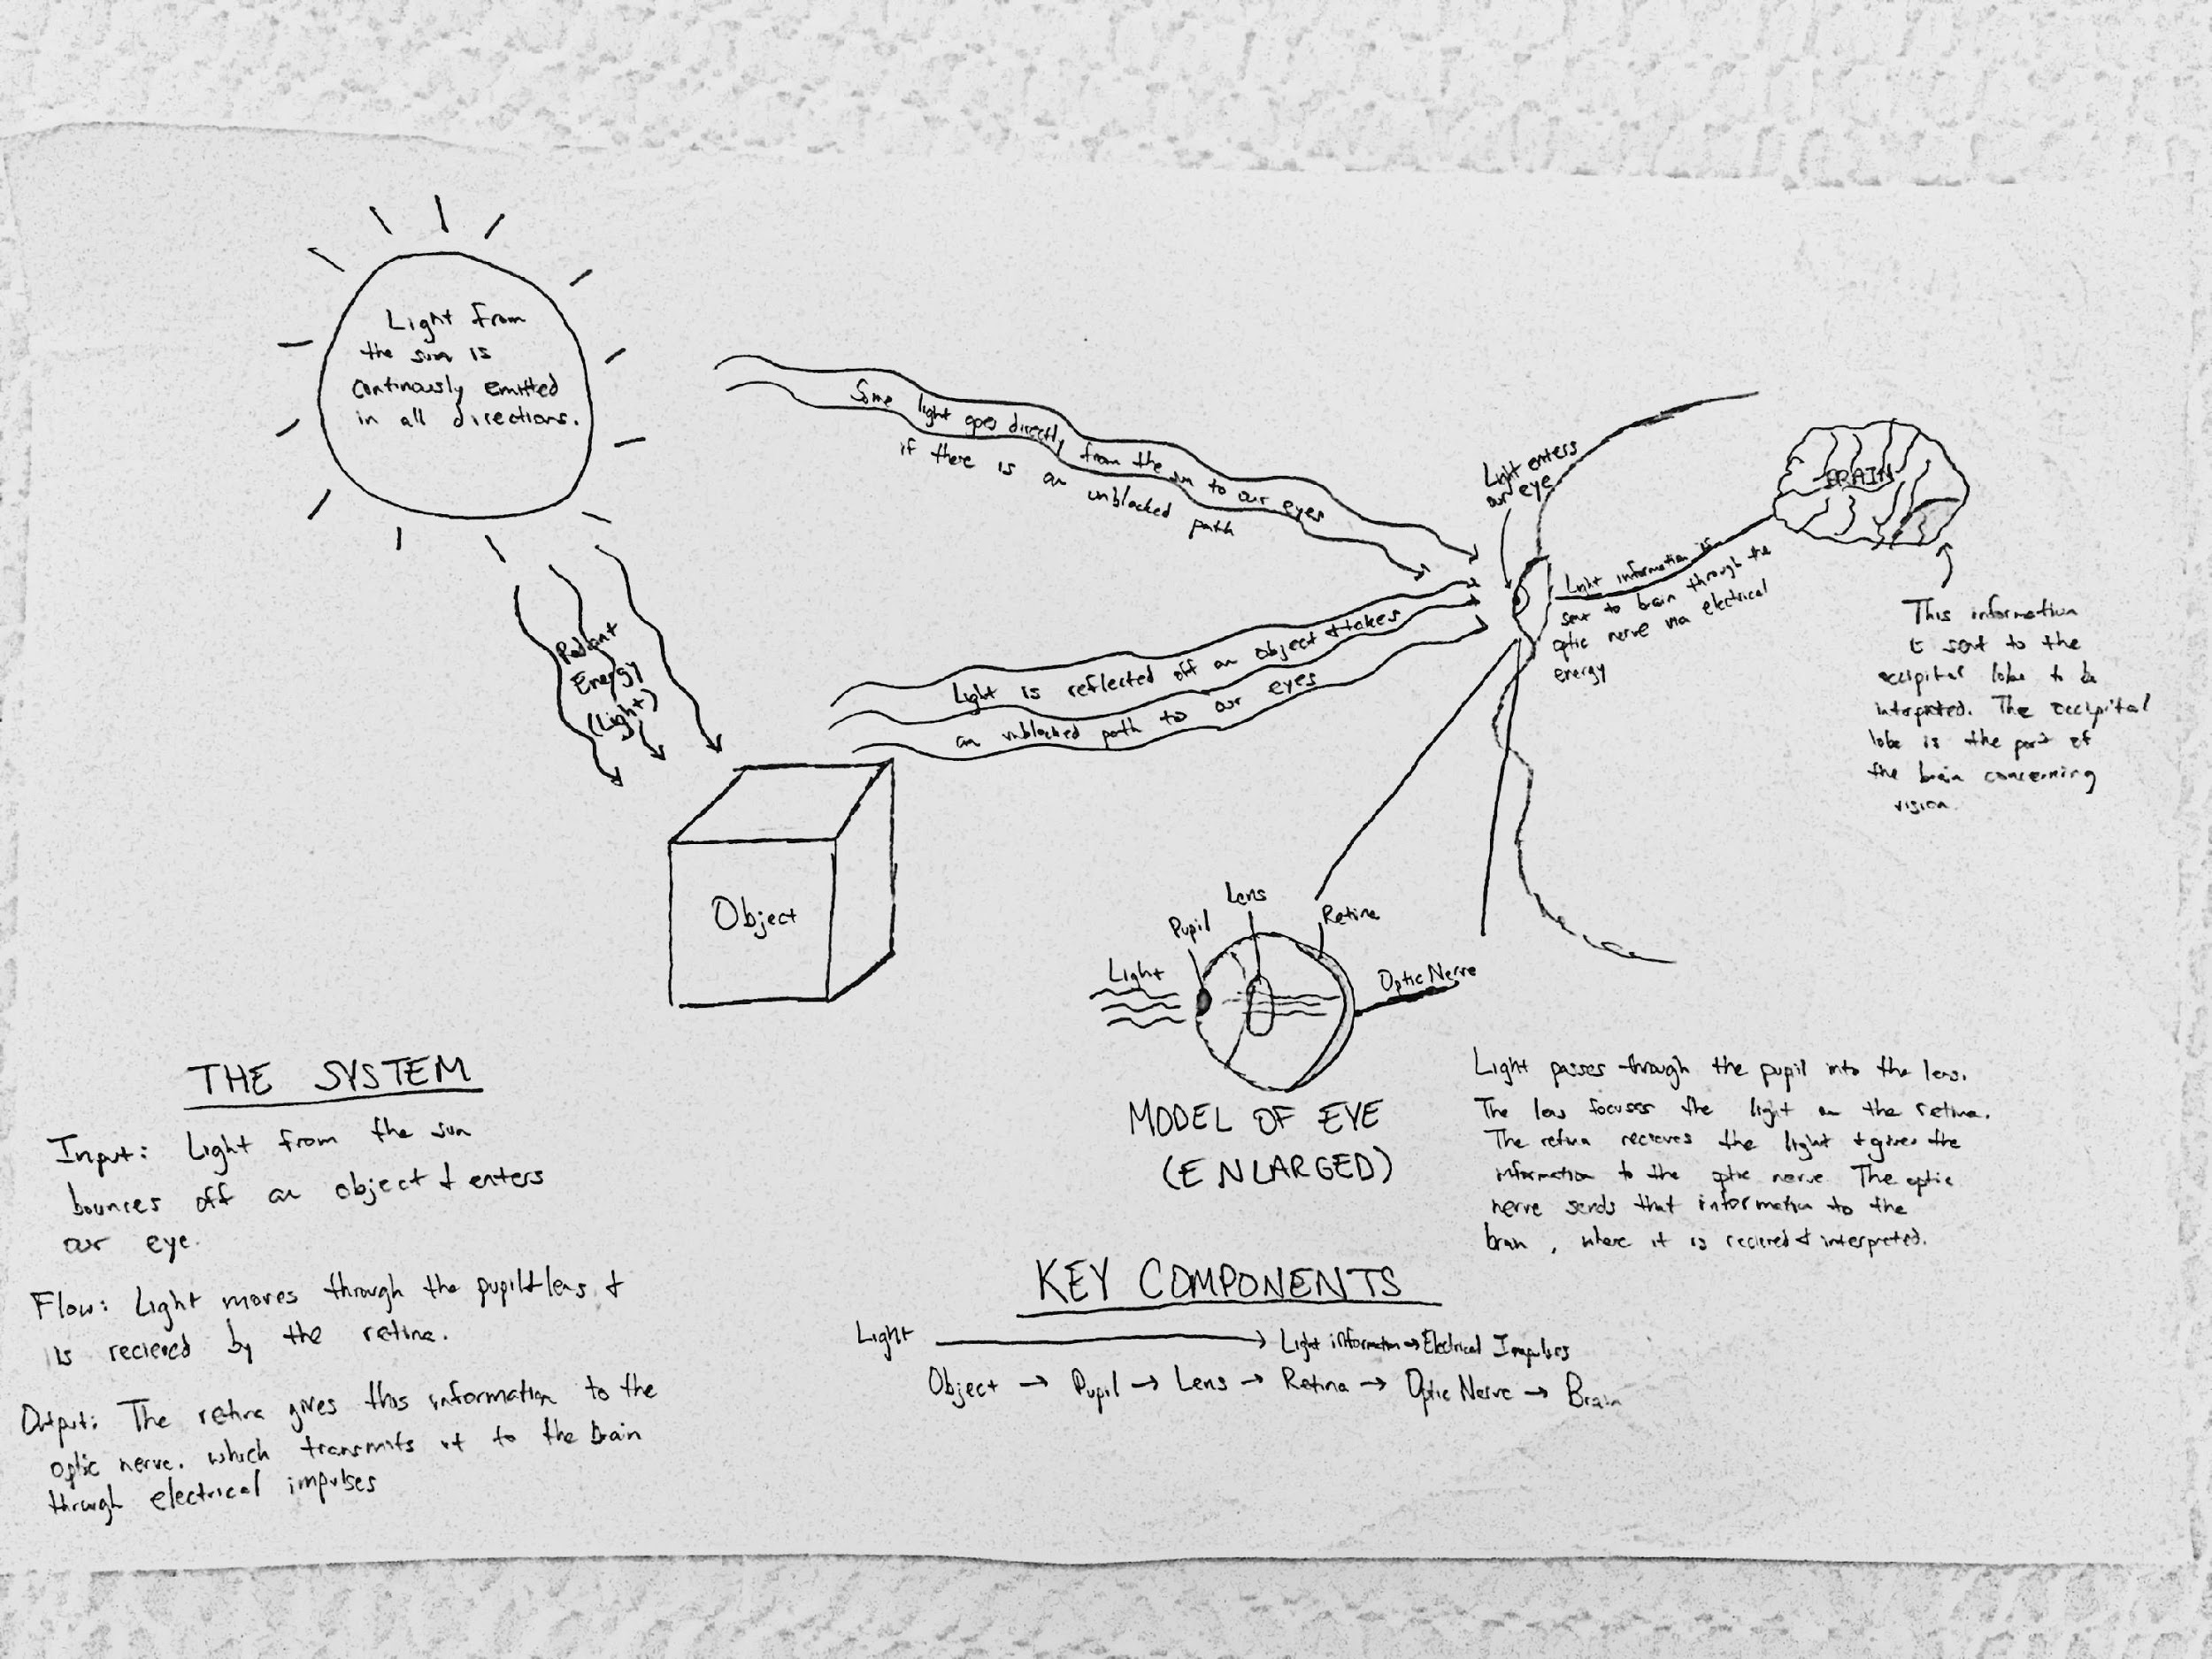 Light from
the sun is
continously emitted
in all directions.
Some light goes directly from the sun to our eyes
if there is an unblocked path
Light enters
our eye
BRAIN
Light information is
sent to brain through the
optic nerve via electrical
energy
This information
is sent to the
occipital lobe to be
interpreted. The occipital
lobe is the part of
the brain concerning
vision.
Radiant
Energy
(Light)
Light is reflected off an object & takes
an unblocked path to our eyes
Object
Lens
Pupil
Retina
Light
Optic Nerve
MODEL OF EYE
(ENLARGED)
Light passes through the pupil into the lens.
The lens focuses the light on the retina.
The retina recieves the light & gives the
information to the optic nerve. The optic
nerve sends that information to the
brain, where it is recieved & interpreted.
THE SYSTEM
Input: Light from the sun
bounces off an object & enters
our eye.
Flow: Light moves through the pupil & lens &
is recieved by the retina.
Output: The retina gives this information to the
optic nerve, which transmits it to the brain
through electrical impulses
KEY COMPONENTS
Light → Light information → Electrical Impulses
Object → Pupil → Lens → Retina → Optic Nerve → Brain